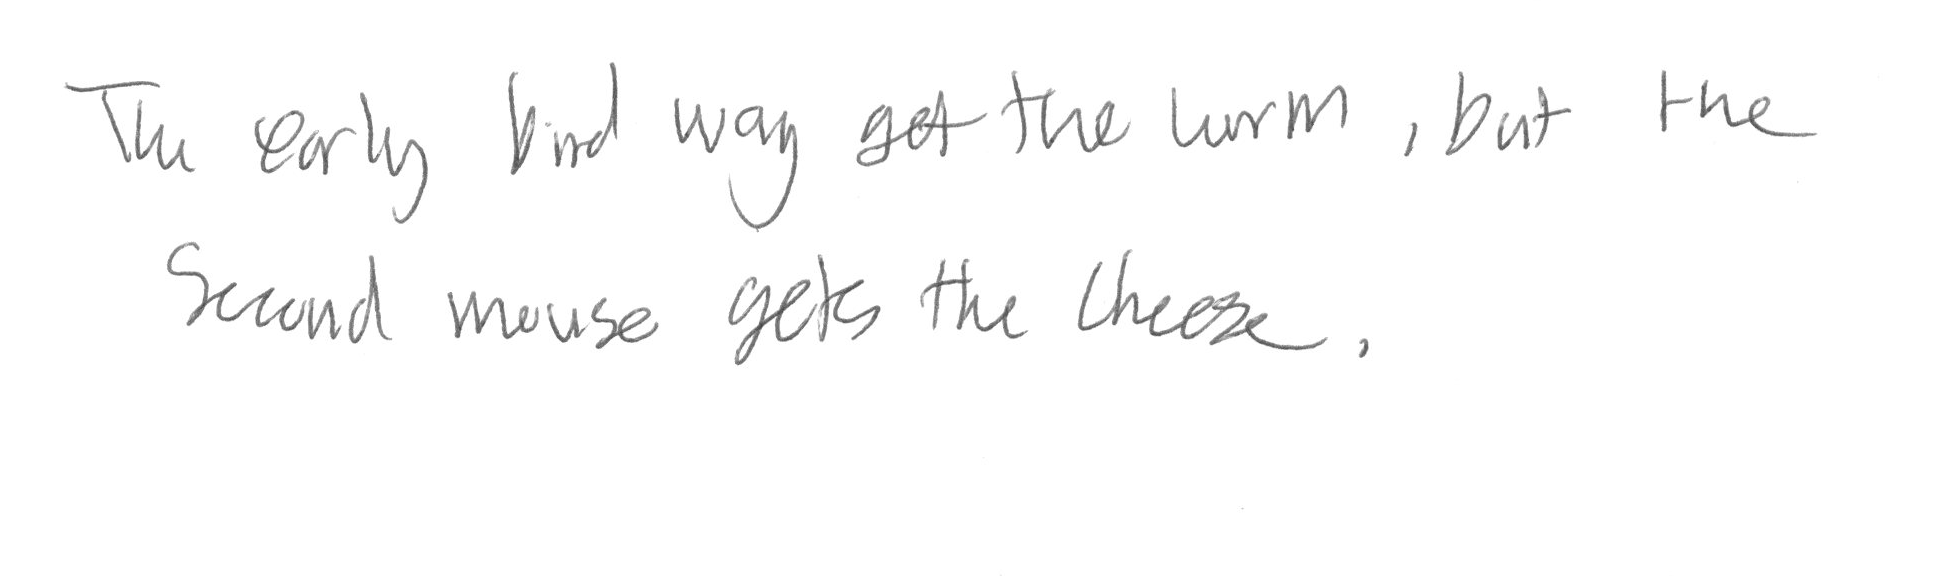 The early bird way get the worm, but the
Second mouse gets the cheese.